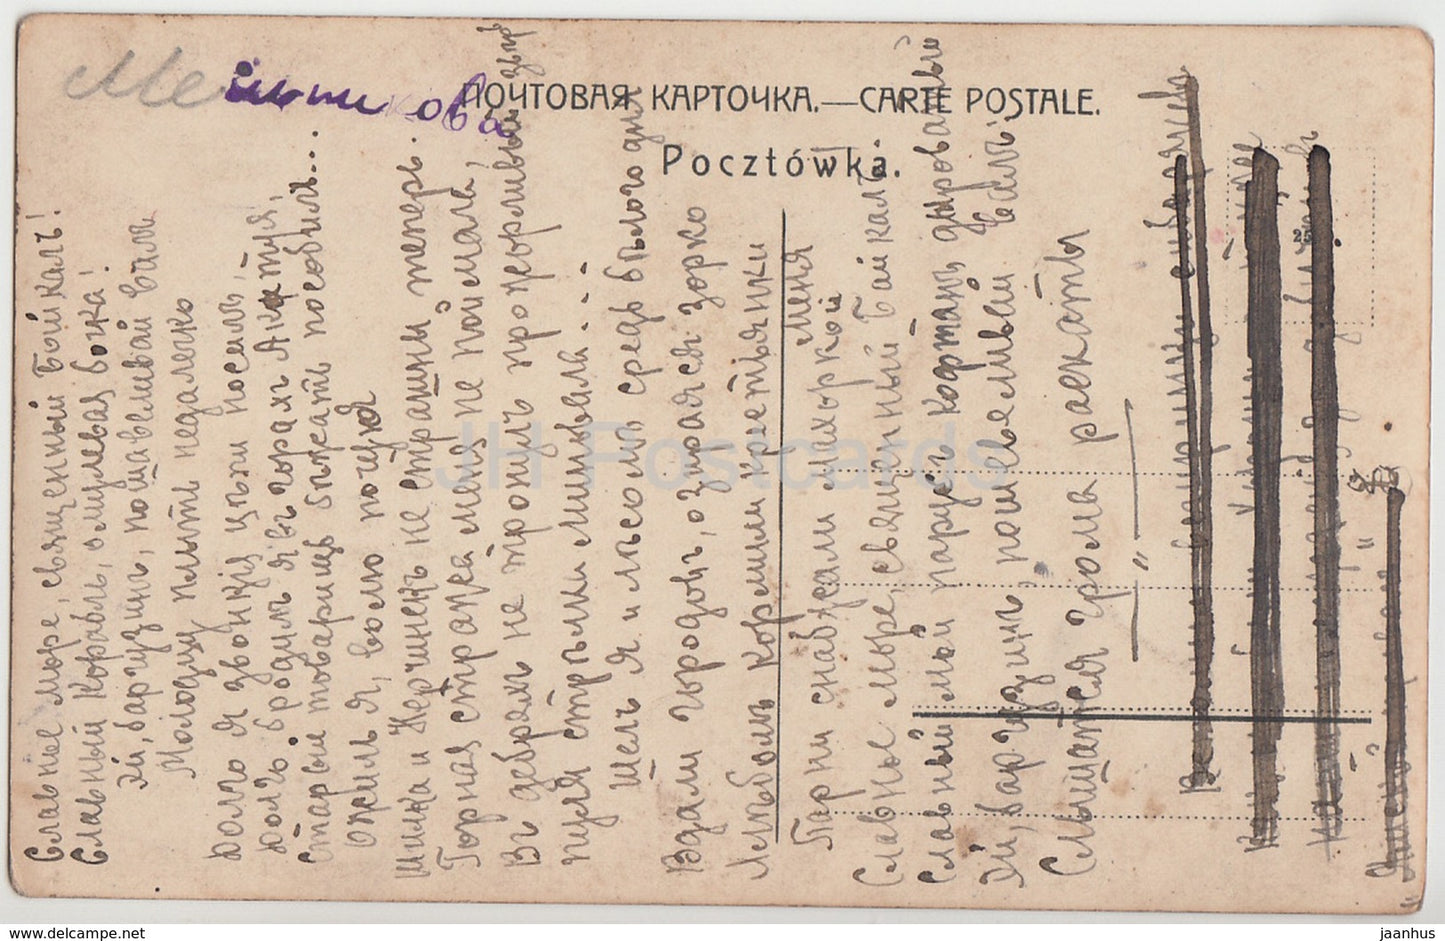 Мельникова
ПОЧТОВАЯ КАРТОЧКА.—CARTE POSTALE.
Pocztówka.
Славное море, священный Байкалъ!
Славный корабль, омулевая бочка!
Эй, баргузинъ, пошавеливай валъ
Молодцу плыть недалеко
Долго я звонкія цѣпи носилъ,
Долго бродилъ я въ горахъ Акатуя,
Старый товарищъ бѣжать пособилъ...
Ожилъ я, волю почуя
Шилка и Нерчинскъ не страшны теперь.
Горная стража меня не поймала,
Въ дебряхъ не тронулъ прожорливый звѣрь
пуля стрѣлка миновала...
Шелъ я и лѣсомъ средь бѣлого дня
Вдали городовъ, озираяся зорко
Хлѣбомъ кормили крестьянки меня
Парни снабжали махоркой
Славное море, священный Байкалъ
Славный мой парусъ кафтанъ дыроватый
Эй, баргузинъ, пошевеливай валъ
Слышатся грома раскаты
25
JH Postcards
jaanhus
delcampe.net